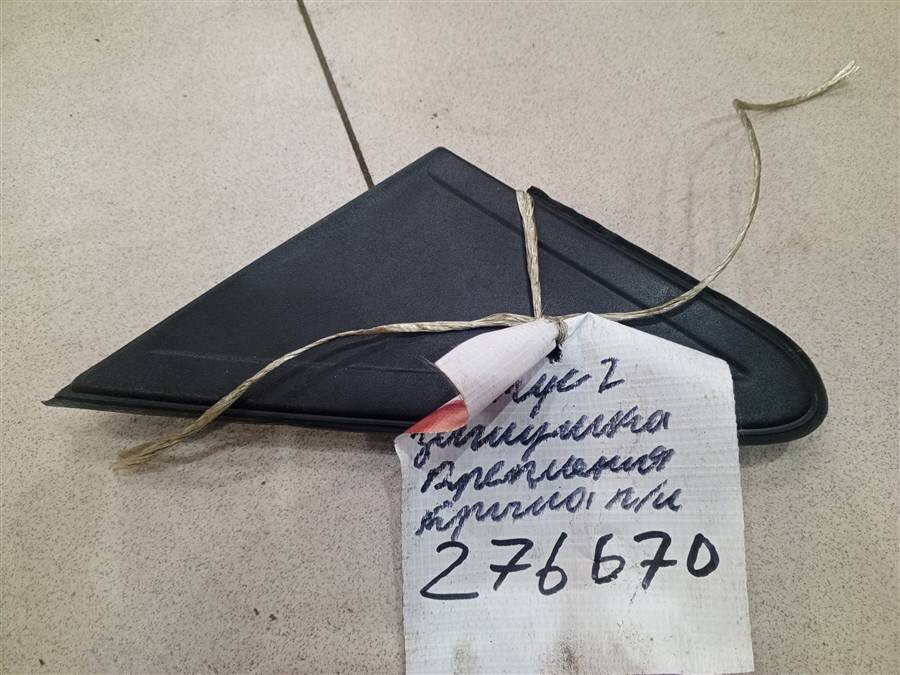 кус 2
заглушка
крепления
крыла, п/л
276670